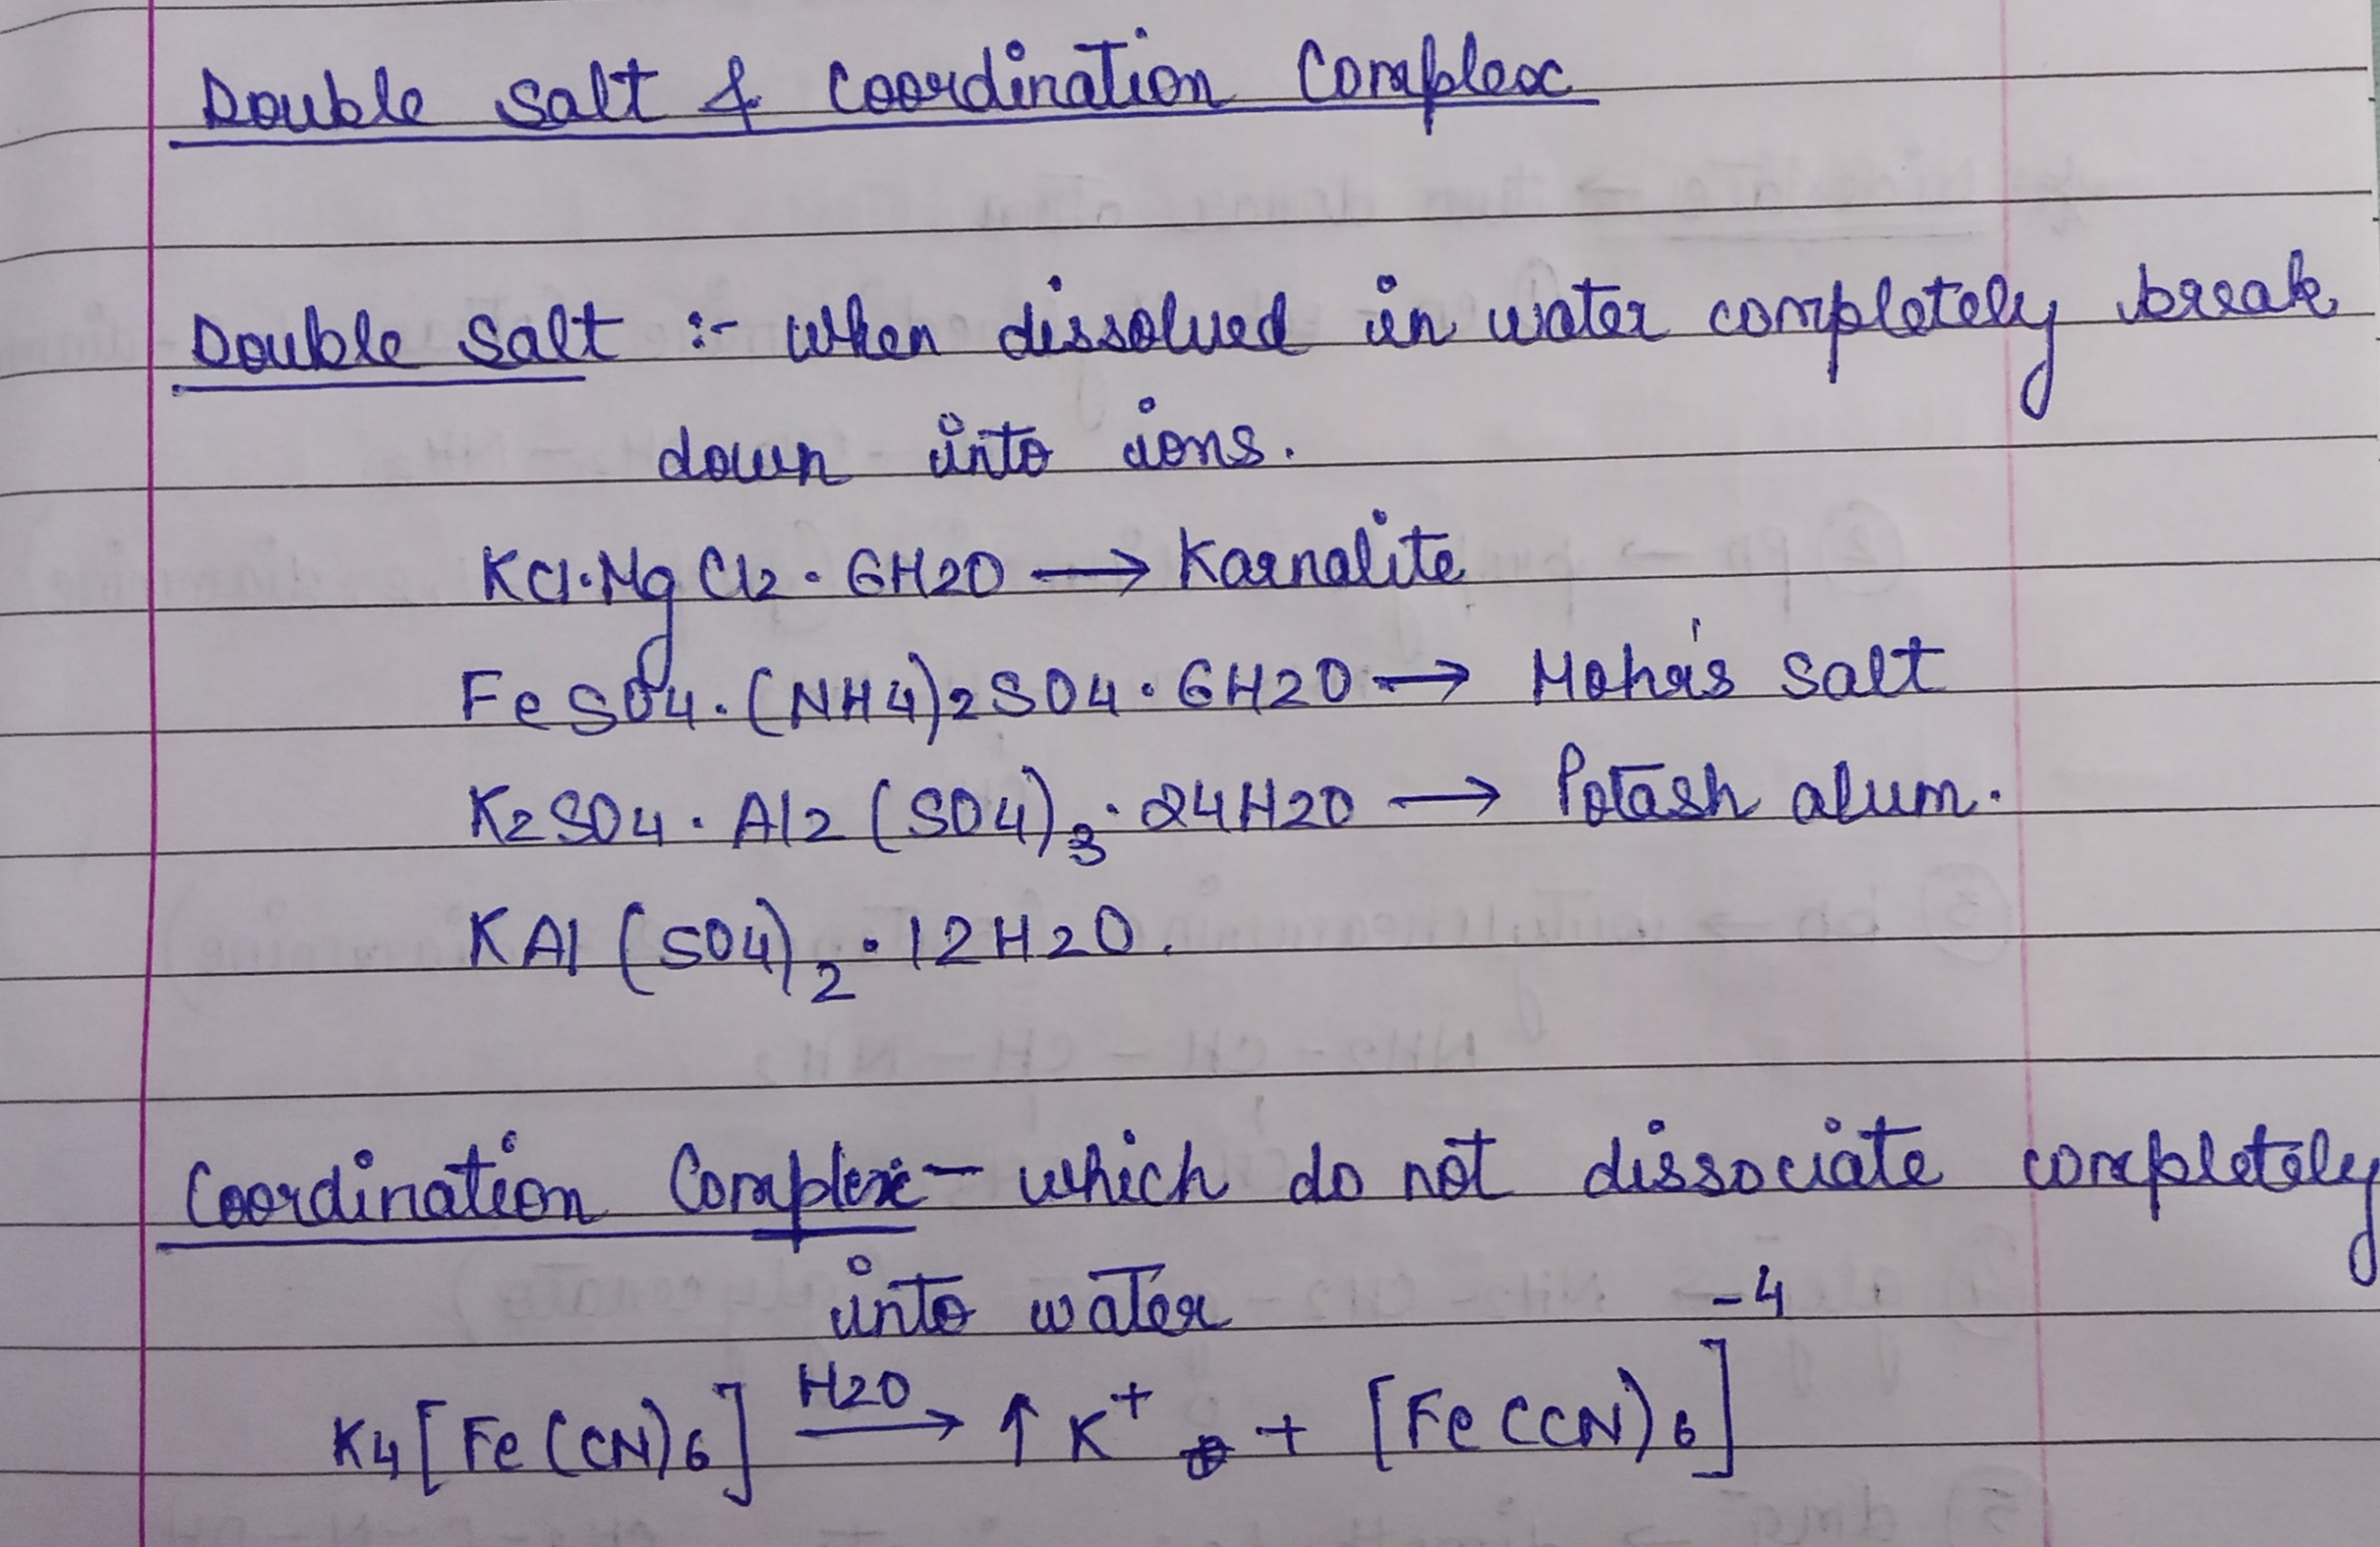 Double Salt & Coordination Complex
Double Salt :- When dissolved in water completely break
down into ions.
KCl·MgCl2·6H2O → Karnalite
FeSO4·(NH4)2SO4·6H2O → Mohr's Salt
K2SO4·Al2(SO4)3·24H2O → Potash alum.
KAl(SO4)2·12H2O.
Coordination Complex - which do not dissociate completely
into water
K4[Fe(CN)6] H2O→ ↑K+ + [Fe(CN)6]-4